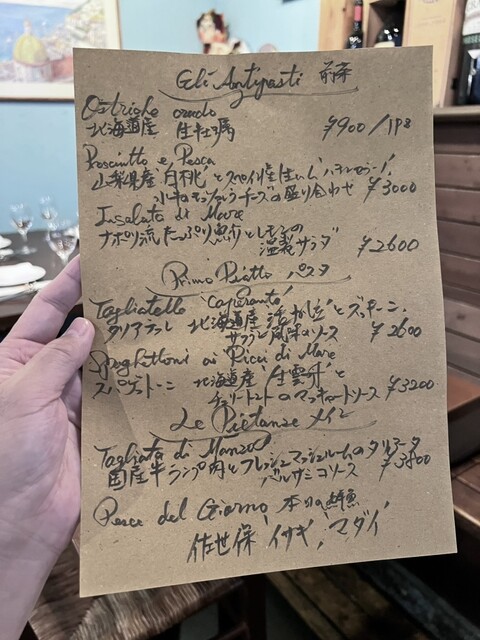 Gli Antipasti 前菜
Ostriche crudo
北海道産 生牡蠣 ¥900/1PB
Prosciutto e Pesca
山梨県産'白桃'とスペイン産生ハム'ハモンセラーノ'
水牛モッツァレラチーズの盛り合わせ ¥3000
Insalata di Mare
ナポリ流たっぷり魚介とレモンの
温製サラダ ¥2600
Primo Piatto パスタ
Tagliatelle
タリアテッレ 北海道産 とズッキーニ
サフラン風味のソース ¥2600
Spaghettoni ai Ricci di Mare
スパゲットーニ 北海道産'生雲丹'と
チェリートマトのマッキャートソース ¥3200
Le Pietanze メイン
Tagliata di Manzo
国産牛ランプ肉とフレッシュマッシュルームのタリアータ
バルサミコソース ¥3800
Pesce del Giorno 本日の鮮魚
佐世保'イサキ','マダイ'